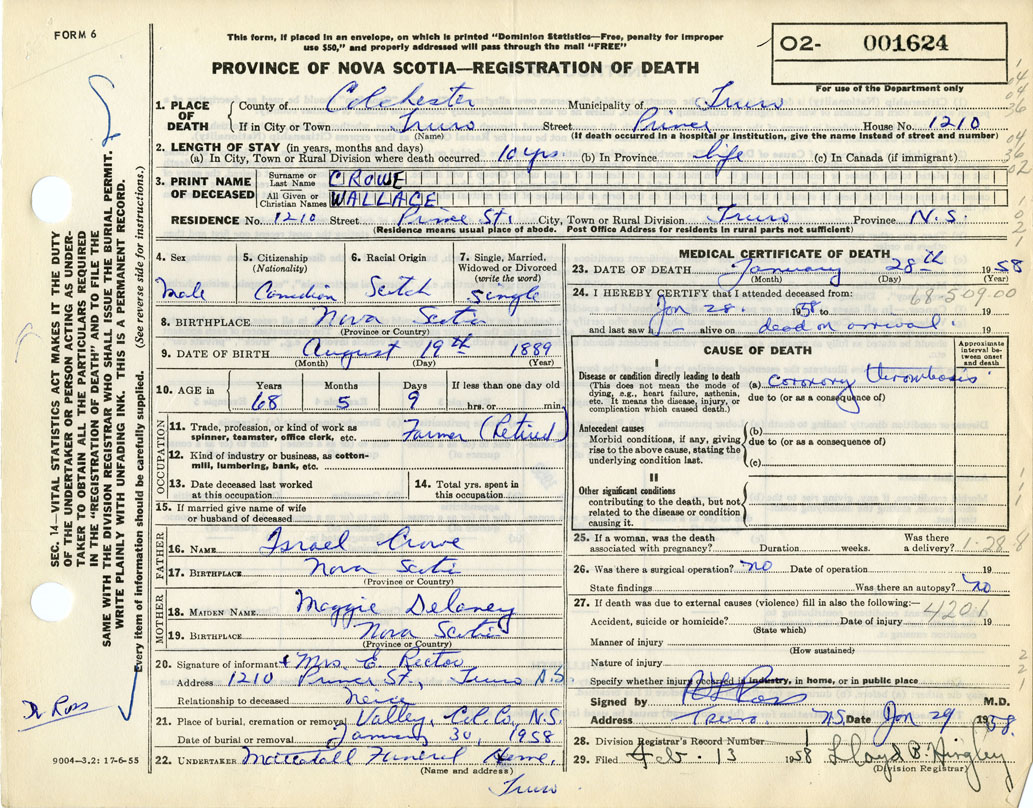 FORM 6
This form, if placed in an envelope, on which is printed "Dominion Statistics—Free, penalty for improper
use $50," and properly addressed will pass through the mail "FREE"
PROVINCE OF NOVA SCOTIA—REGISTRATION OF DEATH
02- 001624
For use of the Department only
1. PLACE OF DEATH County of Colchester Municipality of Truro
If in City or Town Truro Street Prince House No. 1210
(Name) (If death occurred in a hospital or institution, give the name instead of street and number)
2. LENGTH OF STAY (in years, months and days)
(a) In City, Town or Rural Division where death occurred 10 yrs (b) In Province life (c) In Canada (if immigrant)
3. PRINT NAME OF DECEASED Surname or Last Name CROWE
All Given or Christian Names WALLACE
RESIDENCE No. 1210 Street Prince St. City, Town or Rural Division Truro Province N.S.
(Residence means usual place of abode. Post Office Address for residents in rural parts not sufficient)
4. Sex Male
5. Citizenship (Nationality) Canadian
6. Racial Origin Scotch
7. Single, Married, Widowed or Divorced (write the word) Single
8. BIRTHPLACE Nova Scotia
(Province or Country)
9. DATE OF BIRTH August 19th 1889
(Month) (Day) (Year)
10. AGE in Years 68 Months 5 Days 9 If less than one day old hrs. or min.
OCCUPATION
11. Trade, profession, or kind of work as spinner, teamster, office clerk, etc. Farmer (Retired)
12. Kind of industry or business, as cotton-mill, lumbering, bank, etc.
13. Date deceased last worked at this occupation
14. Total yrs. spent in this occupation
15. If married give name of wife or husband of deceased
FATHER
16. NAME Israel Crowe
17. BIRTHPLACE Nova Scotia
(Province or Country)
MOTHER
18. MAIDEN NAME Maggie Delaney
19. BIRTHPLACE Nova Scotia
(Province or Country)
20. Signature of informant Mrs. E. Rector
Address 1210 Prince St., Truro N.S.
Relationship to deceased Neice
21. Place of burial, cremation or removal Valley, Col. Co., N.S.
Date of burial or removal January 30, 1958
22. UNDERTAKER Mattatall Funeral Home,
(Name and address)
Truro
9004—3.2: 17-6-55
MEDICAL CERTIFICATE OF DEATH
23. DATE OF DEATH January 28th 1958
(Month) (Day) (Year)
68-509.00
24. I HEREBY CERTIFY that I attended deceased from:
Jan 28. 1958 to 19
and last saw h alive on dead on arrival. 19
CAUSE OF DEATH
Approximate interval between onset and death
I
Disease or condition directly leading to death
(This does not mean the mode of dying, e.g., heart failure, asthenia, etc. It means the disease, injury, or complication which caused death.)
(a) coronary thrombosis
due to (or as a consequence of)
Antecedent causes
Morbid conditions, if any, giving rise to the above cause, stating the underlying condition last.
(b)
due to (or as a consequence of)
(c)
II
Other significant conditions
contributing to the death, but not related to the disease or condition causing it.
25. If a woman, was the death associated with pregnancy? Duration weeks. Was there a delivery?
1-28-8
26. Was there a surgical operation? no Date of operation 19
State findings Was there an autopsy? No
27. If death was due to external causes (violence) fill in also the following:—
4201
Accident, suicide or homicide? Date of injury 19
(State which)
Manner of injury
(How sustained)
Nature of injury
Specify whether injury occurred in industry, in home, or in public place
Signed by Ross M.D.
Address Truro, N.S. Date Jan 29 1958.
28. Division Registrar's Record Number
29. Filed Feb. 13 1958 Lloyd B Hingley
(Division Registrar)
SEC. 14—VITAL STATISTICS ACT MAKES IT THE DUTY
OF THE UNDERTAKER OR PERSON ACTING AS UNDER-
TAKER TO OBTAIN ALL THE PARTICULARS REQUIRED
IN THE "REGISTRATION OF DEATH" AND TO FILE THE
SAME WITH THE DIVISION REGISTRAR WHO SHALL ISSUE THE BURIAL PERMIT.
WRITE PLAINLY WITH UNFADING INK. THIS IS A PERMANENT RECORD.
Every item of information should be carefully supplied. (See reverse side for instructions.)
Dr Ross